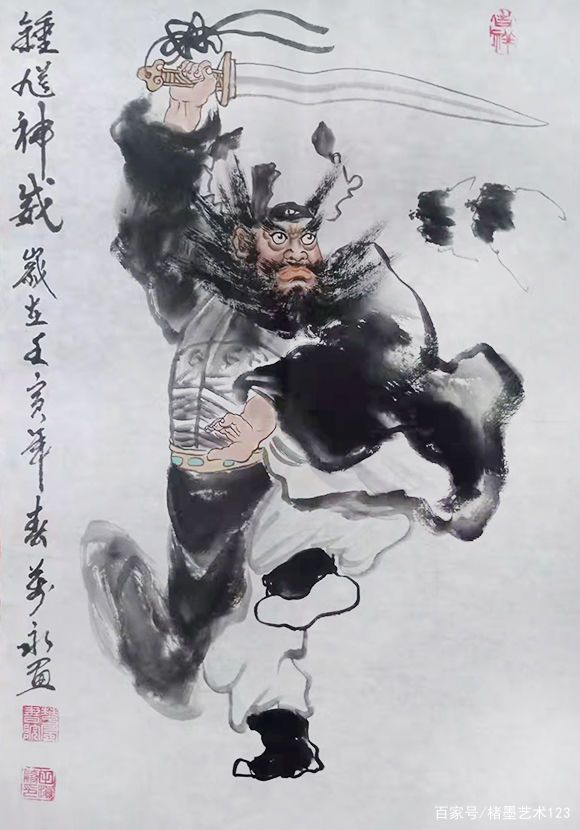 吉祥
鍾馗神威 歲在壬寅年春 萬永画
百家号/楮墨艺术123